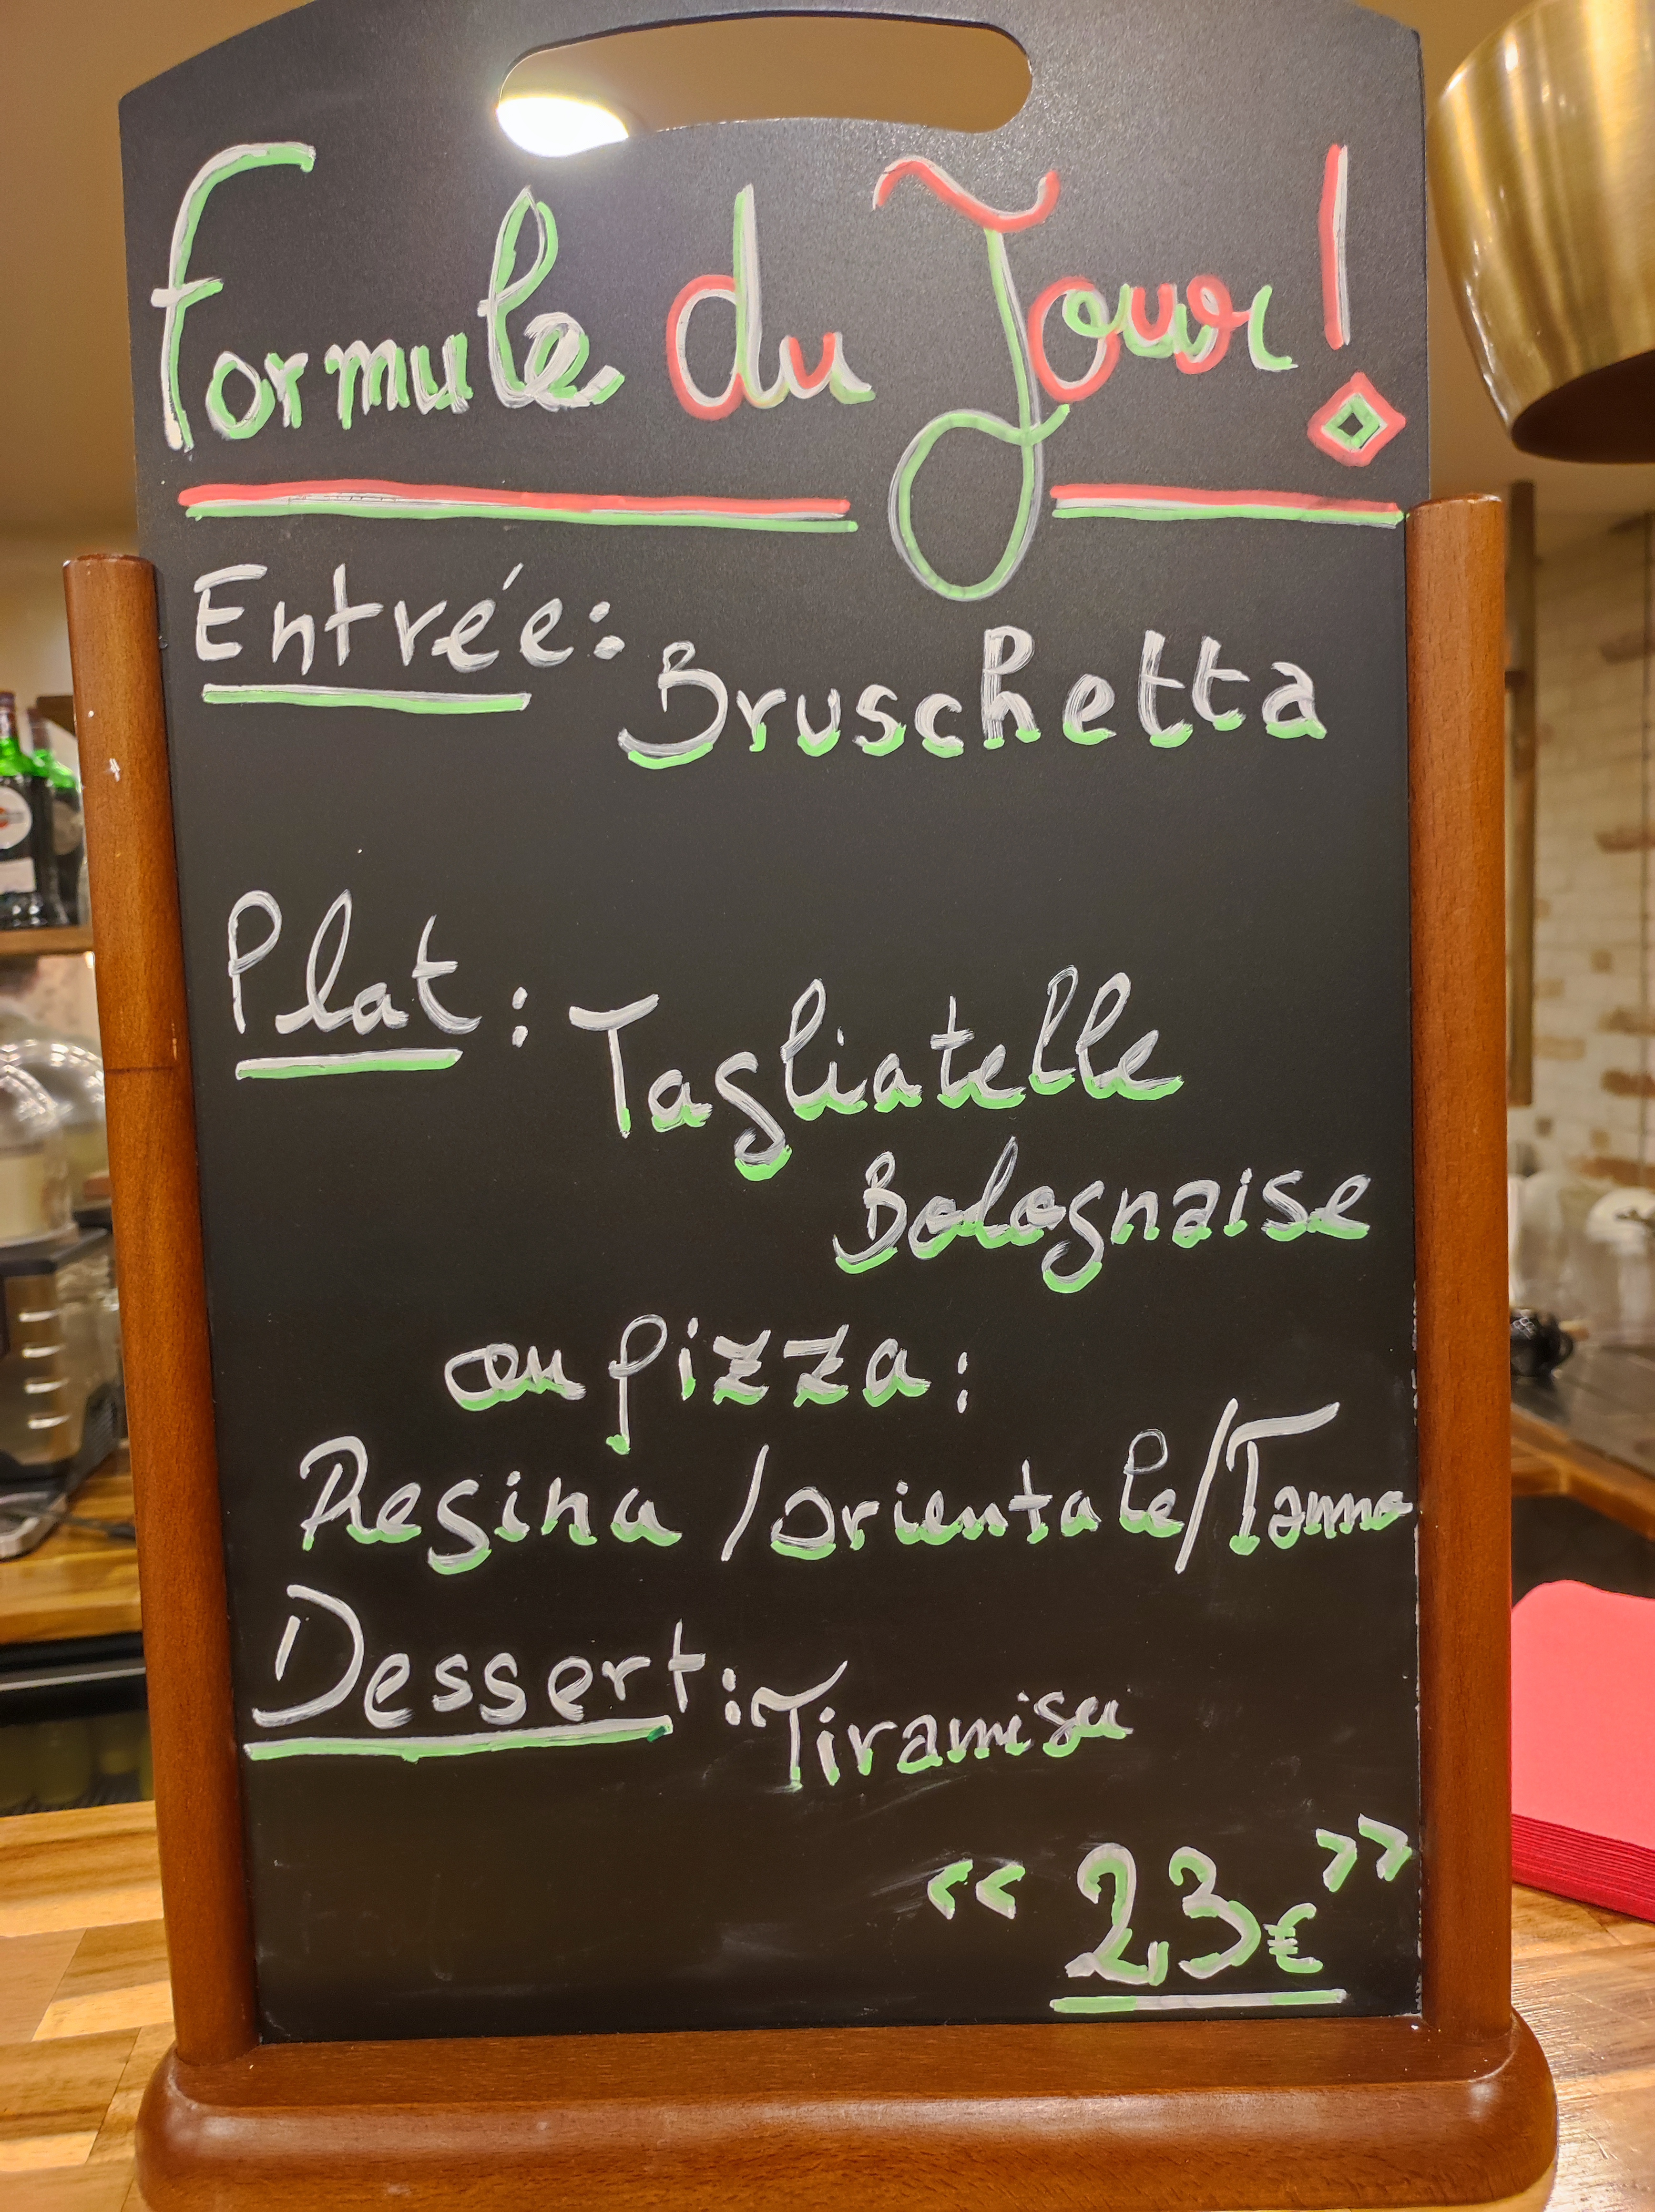 Formule du Jour!
Entrée: Bruschetta
Plat: Tagliatelle
Bolognaise
ou pizza:
Regina / orientale /
Dessert: Tiramisu
<< 23€ >>